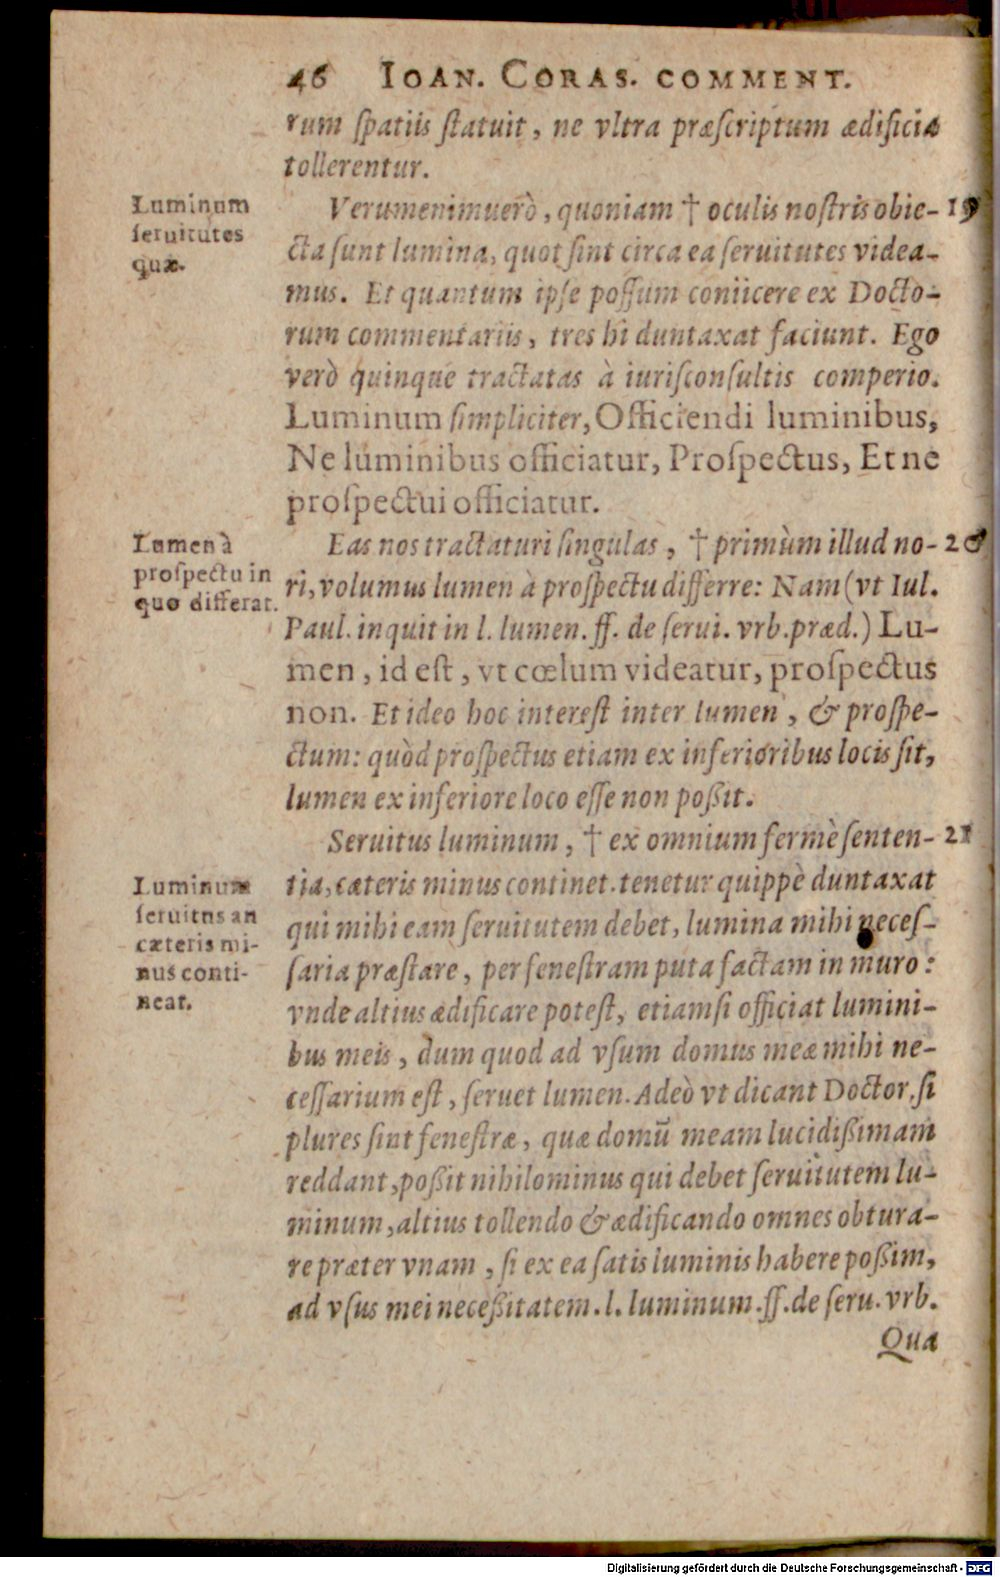 46 IOAN. CORAS. COMMENT.
rum ſpatiis ſtatuit, ne vltra præſcriptum ædificia
tollerentur.
Luminum
ſeruitutes
quæ.
Verumenimuerò, quoniam † oculis noſtris obie- 19
cta ſunt lumina, quot ſint circa ea ſeruitutes videa-
mus. Et quantum ipſe poſſum coniicere ex Docto-
rum commentariis, tres hi duntaxat faciunt. Ego
verò quinque tractatas à iuriſconſultis comperio.
Luminum ſimpliciter, Officiendi luminibus,
Ne luminibus officiatur, Proſpectus, Et ne
proſpectui officiatur.
Lumen à
proſpectu in
quo differat.
Eas nos tractaturi ſingulas, † primùm illud no- 20
ri, volumus lumen à proſpectu differre: Nam (vt Iul.
Paul. inquit in l. lumen. ff. de ſerui. vrb. præd.) Lu-
men, id eſt, vt cœlum videatur, proſpectus
non. Et ideo hoc intereſt inter lumen, & proſpe-
ctum: quòd proſpectus etiam ex inferioribus locis ſit,
lumen ex inferiore loco eſſe non poßit.
Seruitus luminum, † ex omnium fermè ſenten- 21
Luminum
ſeruitus an
cæteris mi-
nus conti-
neat.
tia, cæteris minus continet. tenetur quippè duntaxat
qui mihi eam ſeruitutem debet, lumina mihi neceſ-
ſaria præſtare, per feneſtram puta factam in muro:
vnde altius ædificare poteſt, etiamſi officiat lumini-
bus meis, dum quod ad vſum domus meæ mihi ne-
ceſſarium eſt, ſeruet lumen. Adeò vt dicant Doctor. ſi
plures ſint feneſtræ, quæ domū meam lucidißimam
reddant, poßit nihilominus qui debet ſeruitutem lu-
minum, altius tollendo & ædificando omnes obtura-
re præter vnam, ſi ex ea ſatis luminis habere poßim,
ad vſus mei neceßitatem. l. luminum. ff. de ſeru. vrb.
Qua
Digitalisierung gefördert durch die Deutsche Forschungsgemeinschaft - DFG